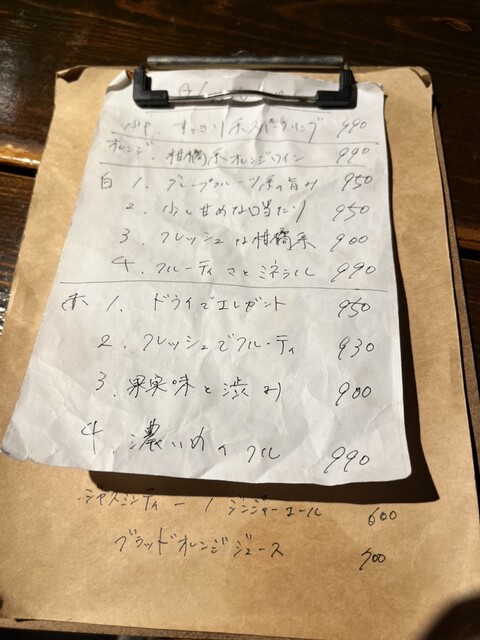 すっきり系スパークリング 990
オレンジ. 柑橘系オレンジワイン 990
白 1. グレープフルーツ系の旨み 950
2. 少し甘めな口当たり 950
3. フレッシュな柑橘系 900
4. フルーティさとミネラル 990
赤 1. ドライでエレガント 950
2. フレッシュでフルーティ 930
3. 果実味と渋み 900
4. 濃いめ フル 990
ジャスミンティー / ジンジャーエール 600
ブラッドオレンジジュース 700